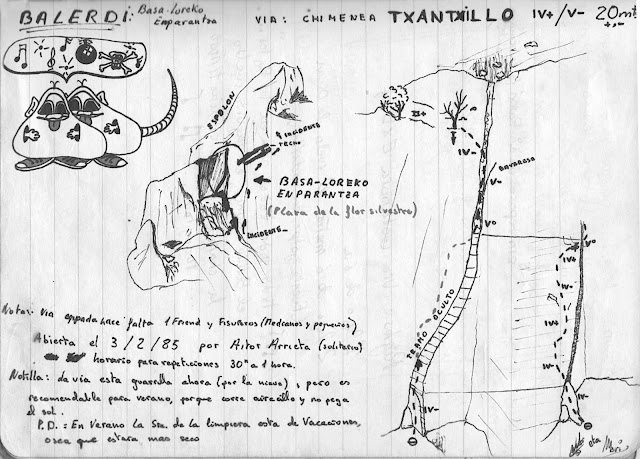 BALERDI: Basa-Loreko
Enparantza
VIA: CHIMENEA TXANTXILLO IV+/V- 20 mts
+,-
ESPOLON
TECHO
BASA-LOREKO
ENPARANTZA
(Plaza de la flor silvestre)
III+
IV-
BAVARESA
V-
Vº
TRAMO OCULTO
IV-
Vº
IV+
IV-
IV+
IV-
Notas: Via equipada hace falta 1 Friend y Fisureros (Medianos y pequeños)
Abierta el 3/2/85 por Aitor Arrieta (solitario)
horario para repeticiones 30" a 1 hora.
Notilla: La via esta guarrilla ahora (por la nieve), pero es
recomendable para verano, porque corre airecillo y no pega
el sol.
P.D.: En Verano la Sra. de la limpieza esta de Vacaciones,
osea que estara mas seco